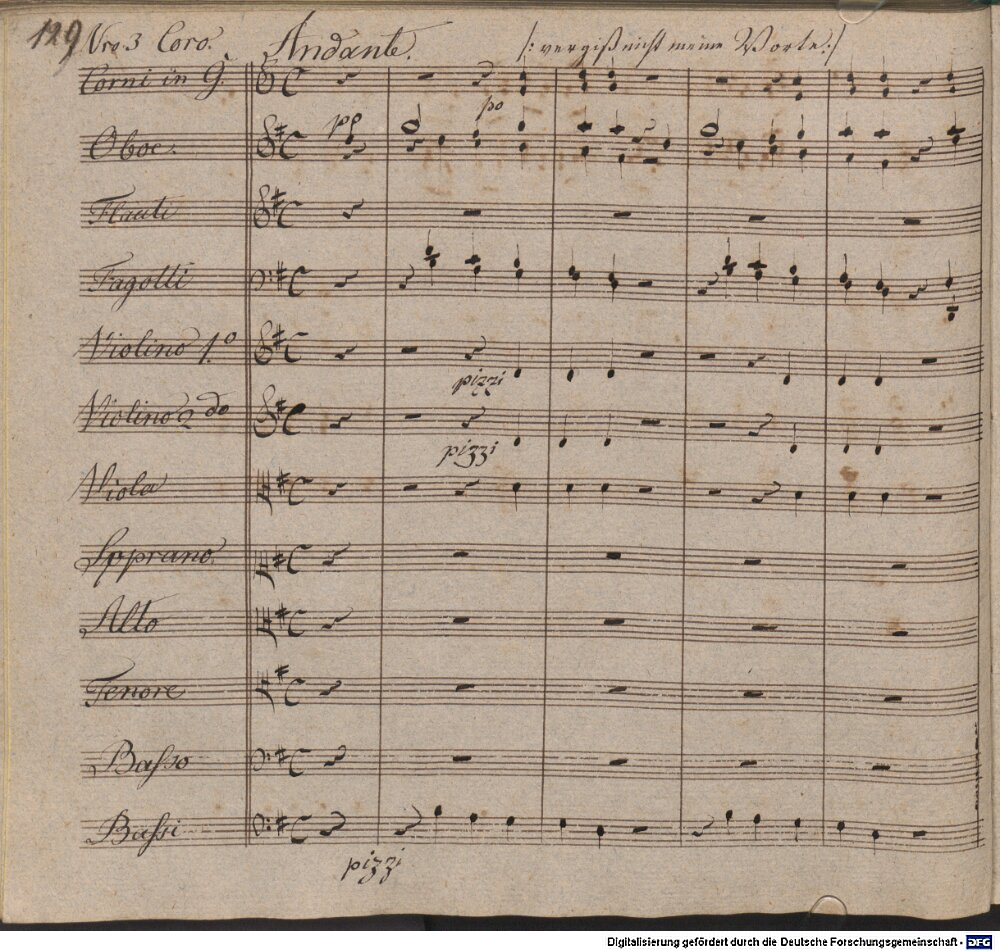 129 Nro. 3 Coro. Andante. /: vergiß nicht meine Worte :/
Corni in G.
po
Oboe. pp
Flauti
Fagotti
Violino 1.o
pizzi
Violino 2do
pizzi
Viola
Sopprano.
Alto
Tenore
Basso
Bassi
pizzi
Digitalisierung gefördert durch die Deutsche Forschungsgemeinschaft - DFG